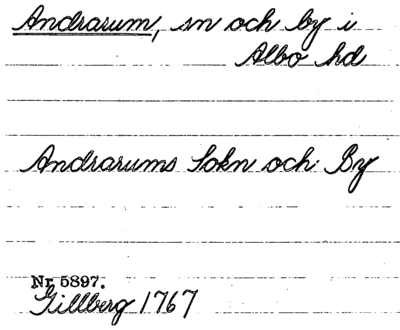 Andrarum, sn och by i
Albo hd
Andrarums Sokn och By
Nr 5897.
Gillberg 1767